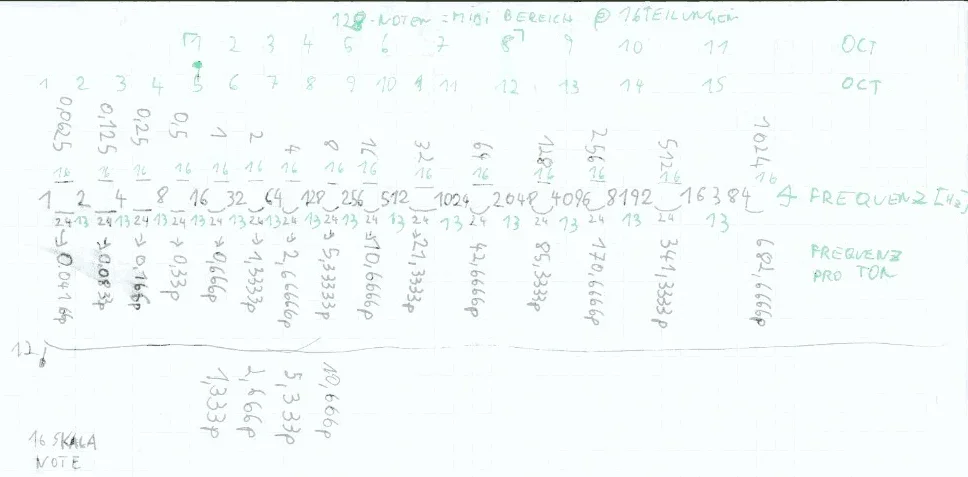 128-NOTEN = MIDI BEREICH @ 16TEILUNGEN
1 2 3 4 5 6 7 8 9 10 11 OCT
1 2 3 4 5 6 7 8 9 10 11 12 13 14 15 OCT
0,0625 0,125 0,25 0,5 1 2 4 8 16 32 64 128 256 512 1024
16 16 16 16 16 16 16 16 16 16 16 16 16 16 16
1 2 4 8 16 32 64 128 256 512 1024 2048 4096 8192 16384 → FREQUENZ [Hz]
24 13 24 13 24 13 24 13 24 13 24 13 24 13 24 13 24 13 24 13 24 13 24 13 24 13 24 13 24
0,0416p 0,083p 0,166p 0,33p 0,666p 1,3333p 2,6666p 5,33333p 10,6666p 21,3333p 42,6666p 85,3333p 170,6666p 341,3333p 682,6666p
FREQUENZ
PRO TON
12
1,333p 2,666p 5,333p 10,666p
16 SKALA
NOTE